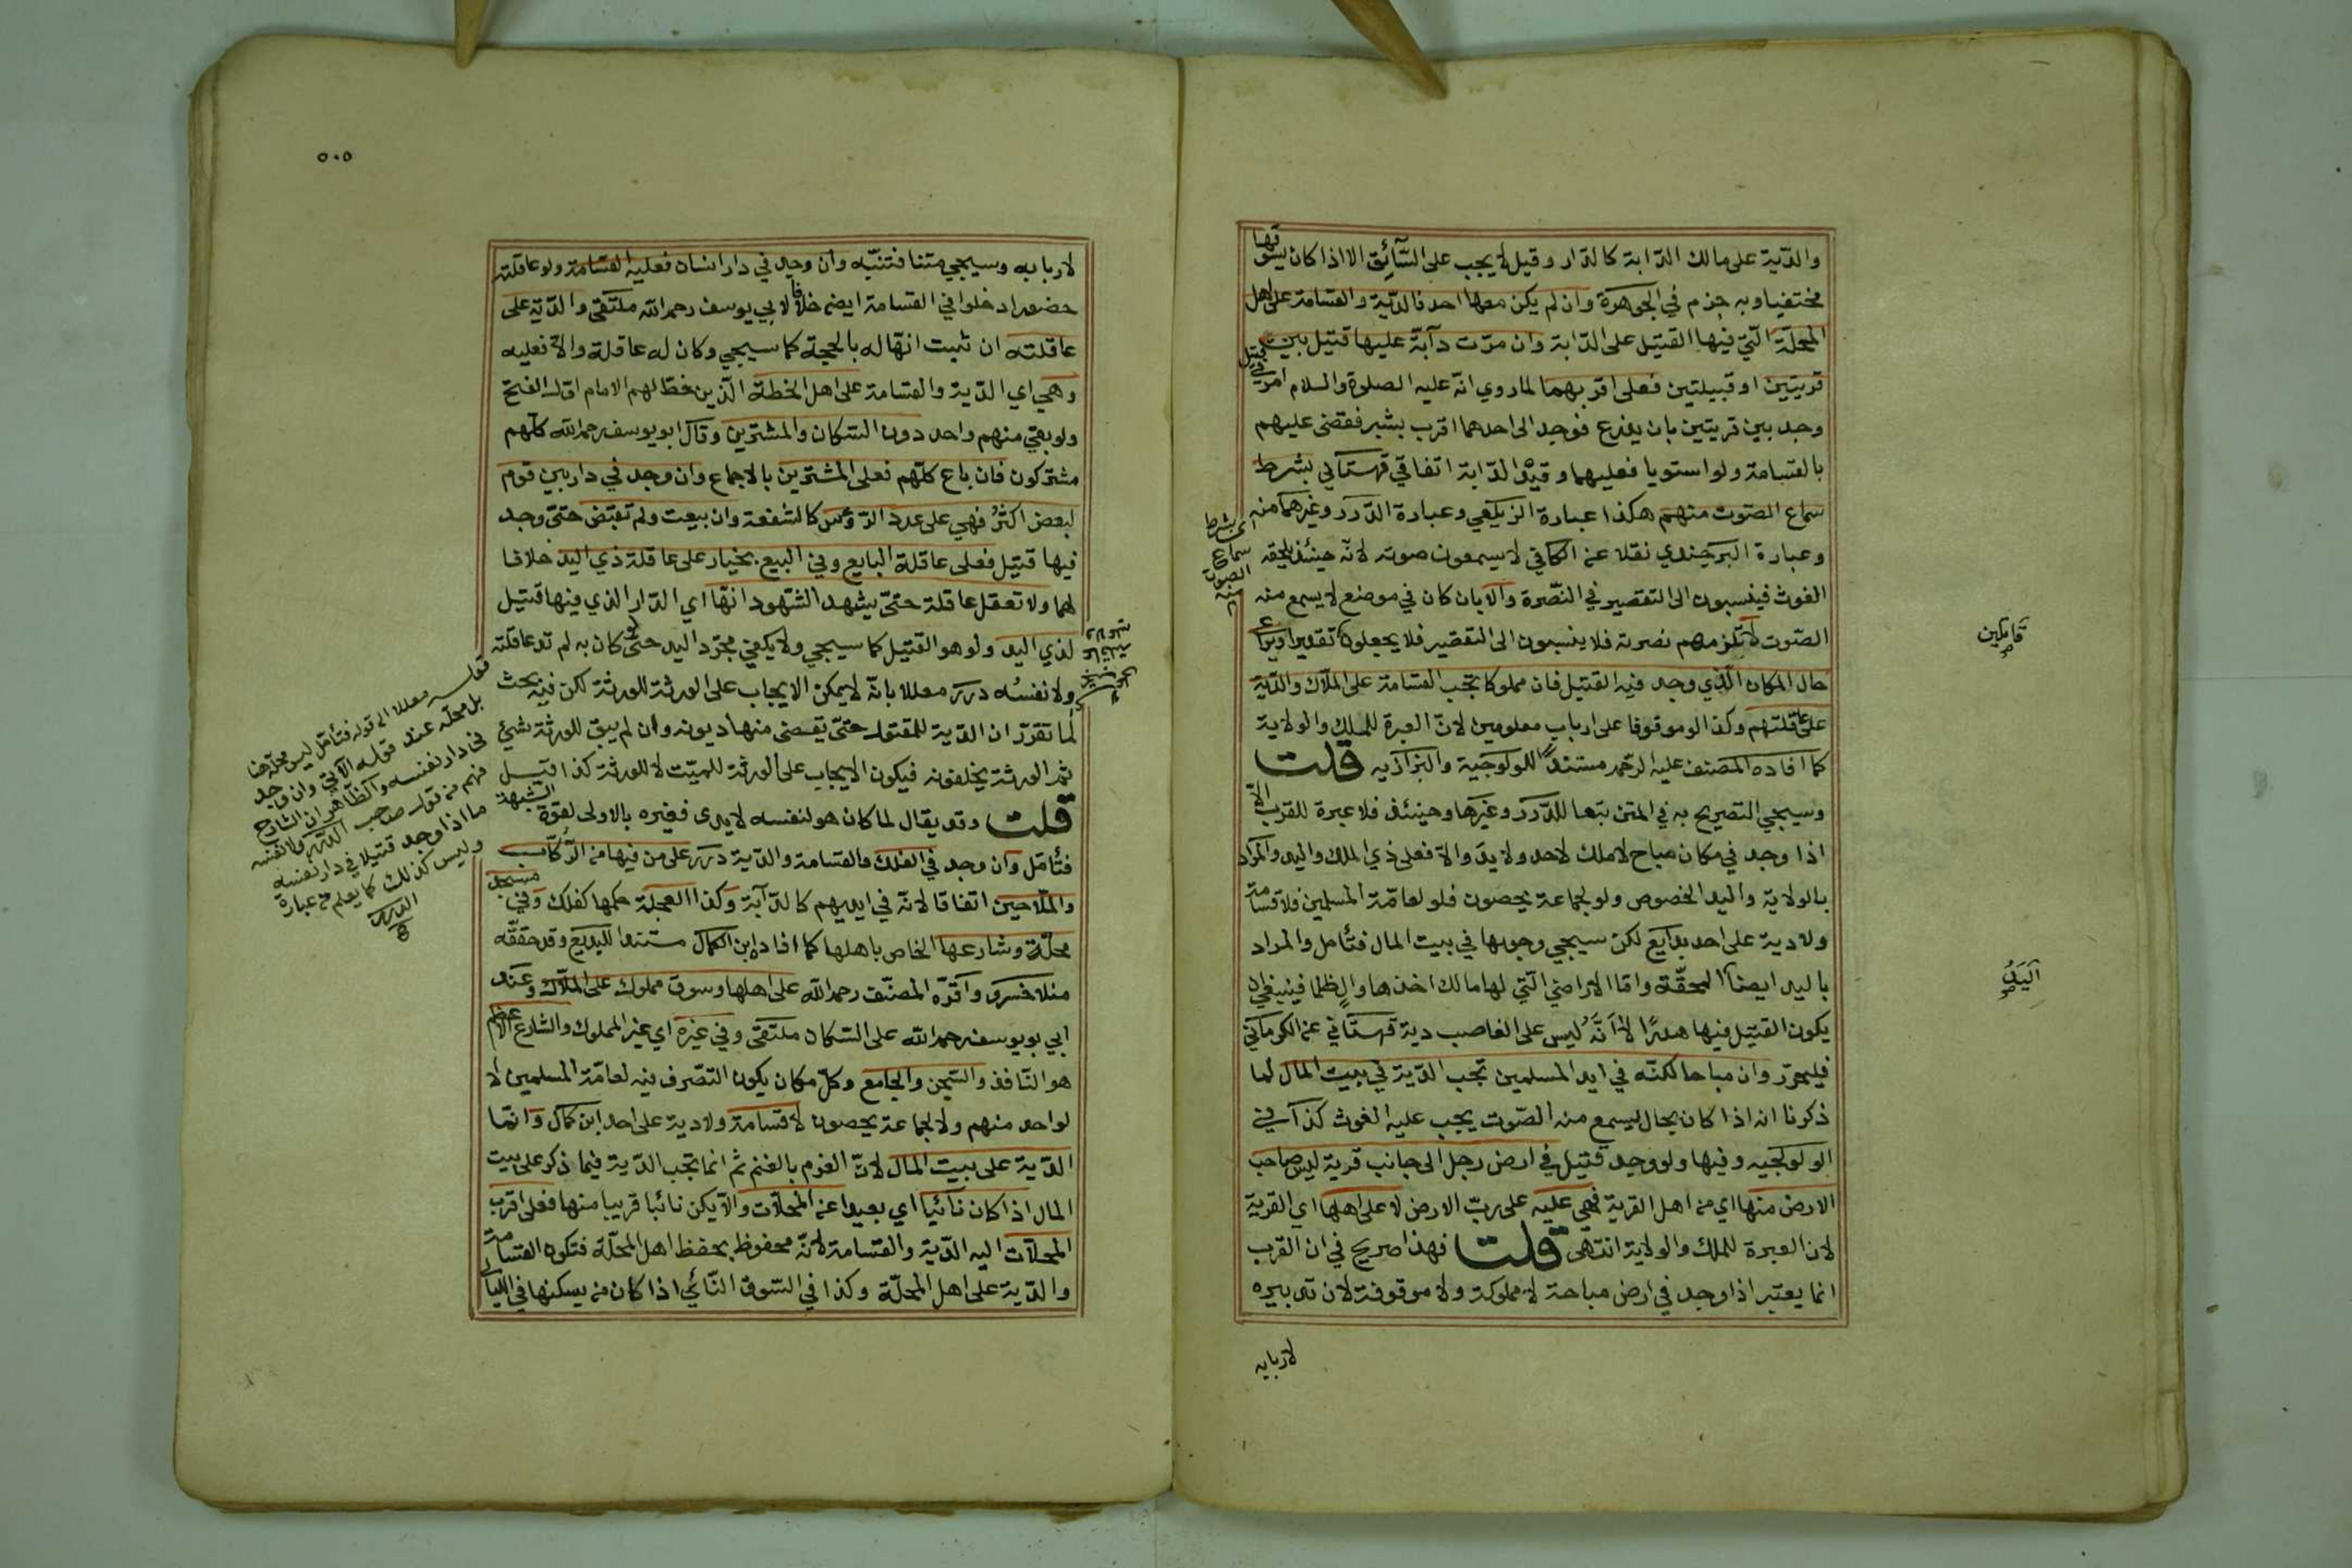 والدّية على مالك الدّابة كالدّار وقيل لا يجب على السّآئق الا اذا كان يسوقها
مختفيا وبه جزم في الجوهرة وان لم يكن معها احد فالدّية والقسامة على اهل
المحلّة الّتي فيها القتيل على الدّابة وان مرّت دآبّة عليها قتيل بين
قريتين او قبيلتين فعلى اقربهما لما روي انّه عليه الصلوة والسلام امر في قتيل
وجد بين قريتين بان يذرع فوجد الى احدهما اقرب بشبر فقضى عليهم
بالقسامة ولو استويا فعليهما وقيّد الدّابة اتفاقي قهستاني بشرط
سماع الصّوت منهم هكذا عبارة الزيلعي وعبارة الدّرر وغيرهما منه
اي بشرط سماع الصوت منه
وعبارة البرجندي نقلا عن الكافي لا يسمعون صوته لانّه حينئذ يلحقه
الغوث فينسبون الى التقصير في النّصرة والا بان كان في موضع لا يسمع منه
الصّوت لا تلزمهم نصرته فلا ينسبون الى التقصير فلا يجعلون تقديرا ويراعى
قاتلين
حال المكان الّذي وجد فيه القتيل فان مملوكا تجب القسامة على الملّاك والدّية
على عاقلتهم وكذا لو موقوفا على ارباب معلومين لانّ العبرة للملك والولاية
كما افاده المصنف عليه الرّحمه مستندا للولوجية والبزازيه قلت
وسيجي التصريح به في المتن تبعا للدّرر وغيرها وحينئذ فلا عبرة للقرب الّا
اذا وجد في مكان مباح لا ملك لاحد ولا يد والّا فعلى ذي الملك واليد والمراد
بالولاية واليد الخصوص ولو لجماعة يحصون فلو لعامّة المسلمين فلا قسامة
ولا دية على احد بدايع لكن سيجي وجوبها في بيت المال فتأمل والمراد
باليد ايضا المحقّة واما الاراضي الّتي لها مالك اخذها والٍ ظلما فينبغي ان
اليَدُ
يكون القتيل فيها هدرًا لانَّه ليس على الغاصب دية قهستاني عن الكرماني
فليحرّر وان مباحا لكنّه في ايد المسلمين تجب الدّية في بيت المال لما
ذكرنا انه اذا كان بحال يسمع منه الصّوت يجب عليه الغوث كذا في
الولولجيه وفيها ولو وجد قتيل في ارض رجل الى جانب قرية ليس صاحب
الارض منها اي من اهل القرية فهي عليه على ربّ الارض لا على اهلها اي القرية
لان العبرة للملك والولاية انتهى قلت فهذا صريح في ان القرب
انما يعتبر اذا وجد في ارض مباحة لا مملوكة ولا موقوفة لان تدبيره
لاربابه
٥٠٥
لاربابه وسيجي متنا فتنبّه وان وجد في دار انسان فعليه القسامة ولو عاقلته
حضورا دخلوا في القسامة ايضا خلافا لابي يوسف رحمه الله ملتقى والدّية على
عاقلته ان ثبت انّها له بالحجة كما سيجي وكان له عاقلة والّا فعليه
وهي اي الدّية والقسامة على اهل الخطة الّذين خطّ لهم الامام اوّل الفتح
ولو بقي منهم واحد دون السّكان والمشترين وقال ابو يوسف رحمه الله كلّهم
مشتركون فان باع كلّهم فعلى المشترين بالاجماع وان وجد في دار بين قوم
لبعض اكثرُ فهي على عدد الرّؤس كالشفعة وان بيعت ولم تقبض حتّى وجد
فيها قتيل فعلى عاقلة البايع وفي البيع بخيار على عاقلة ذي اليد خلافا
لهما ولا تعقل عاقلة حتّى يشهد الشّهود انّها اي الدّار الذي فيها قتيل
لذي اليد ولو هو القتيل كما سيجي ولا يكفي مجرّد اليد حتّى لو كان به لم تد عاقلته
ولا نفسُه درر معللا بانّه لا يمكن الايجاب على الورثة للورثة لكن فيه بحث
لما تقرّر ان الدّية للمقتول حتّى يقضى منها ديونه وان لم يبق للورثة شئ
ثمّ الورثة يخلفونه فيكون الايجاب على الورثة للميّت لا للورثة كذا قيل
قلت وقد يقال لما كان هو لنفسه لا يدى فغيره بالاولى لقوّة الشّبهة
فتأمّل وان وجد في الفلك فالقسامة والدّية درر على من فيها من الرُّكّاب
والملّاحين اتفاقا لانّه في ايديهم كالدّآبّة وكذا العجلة حكمها كفلك وفي مسجد
محلّة وشارعها الخاص باهلها كما افاده ابن الكمال مستندا للبديع وقد حقّقه
منلا خسرو واقرّه المصنّف رحمه الله على اهلها وسوق مملوك على الملّاك وعند
ابي يوسف رحمه الله على السّكان ملتقى وفي غيره اي غير المملوك والشارع الاعظم
هو النّافذ والسّجن والجامع وكلّ مكان يكون التصّرف فيه لعامّة المسلمين لا
لواحد منهم ولا لجماعة يحصون لا قسامة ولا دية على احد ابن كمال وانّما
الدّية على بيت المال لانّ الغرم بالغنم ثم انما تجب الدّية فيما ذكر على بيت
المال اذا كان نآئيا اي بعيدا عن المحلّات والّا يكن نائيا قريبا منها فعلى اقرب
المحلّات اليه الدّية والقسامة لانّه محفوظ بحفظ اهل المحلّة فتكون القسامة
والدّية على اهل المحلّة وكذا في السّوق النّائي اذا كان من يسكنها في الليالي
قوله معللا الى قوله فتأمّل ليس محلّه هنا
بل محلّه عند قوله الآتي وان وجد
في دار نفسه والظّاهر ان الشارح
فهم من قول صاحب الدّرر ولا نفسه
ما اذا وجد قتيلا في دار نفسه
وليس كذلك كما يعلم من عبارة
الدرر